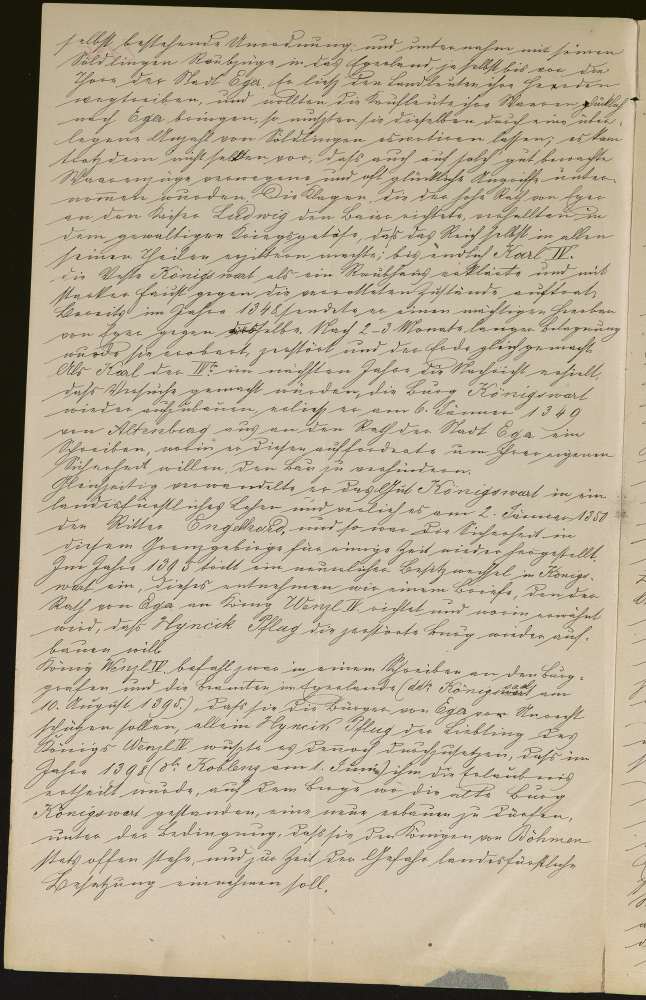 selbst bestehende Anordnung, und unternahm mit seinen
Söldlingen Raubzüge in das Egerland, ja selbst bis vor die
Thore der Stadt Eger, so ließ den Landleuten ihre Heerden
wegtreiben, und wollten die Kaufleute ihre Waaren
nach Eger bringen, so mußten sie dieselben durch eine über-
legene Anzahl von Söldlingen escortieren lassen; es kam
trotzdem nicht selten vor, daß auch auf solch gut bewachte
Waarenzüge verwegene und oft glückliche Angriffe unter-
nommen wurden. Die Klagen, die der hohe Rath von Eger
an den Kaiser Ludwig den Baier richtete, verhallten in
dem gewaltigen Kriegsgetöse, das das Reich selbst in allen
seinen Theilen erzittern machte; bis endlich Karl IV.
die Veste Königswart als ein Raubhaus erklärte und mit
starker Faust gegen die verrotteten Zustände auftrat.
Bereits im Jahre 1348 sendete er einen mächtigen Heerbann
von Eger gegen dieselbe. Nach 2-3 Monate langer Belagerung
wurde sie erobert, zerstört und der Erde gleich gemacht.
Als Karl der IVte im nächsten Jahre die Nachricht erhielt,
daß Versuche gemacht würden, die Burg Königswart
wieder aufzubauen, erließ er am 6. Jänner 1349
von Altenberg aus an den Rath der Stadt Eger ein
Schreiben, worin er diesen aufforderte um ihrer eigenen
Sicherheit willen, den Bau zu verhindern.
Gleichzeitig verwandelte er das Gut Königswart in ein
landesfürstliches Lehen und verlieh es am 2. Jänner 1350
den Ritter Engelhard, und so war die Sicherheit in
diesem Grenzgebirge für einige Zeit wieder hergestellt.
Im Jahre 1395 tritt ein neuerlicher Besitzwechsel in Königs-
wart ein, dieses entnehmen wir einem Briefe, den der
Rath von Eger an König Wenzl IV richtet und worin erwähnt
wird, daß Hyncik Pflug die zerstörte Burg wieder auf-
bauen will.
König Wenzl IV. befahl zwar in einem Schreiben an den Burg-
grafen und die Beamten im Egerlande (ddto Königswart am
10. August 1395.) daß sie die Bürger von Eger vor Unrecht
schützen sollen, allein Hyncik Pflug der Liebling des
Königs Wenzl IV wußte es dennoch durchzusetzen, daß im
Jahre 1398 (dto Koblenz am 1. Juni) ihm die Erlaubnis
ertheilt wurde, auf dem Berge wo die alte Burg
Königswart gestanden, eine neue erbauen zu dürfen,
unter der Bedingung, daß sie den Königen von Böhmen
stets offen stehe, und zur Zeit der Gefahr landesfürstliche
Besatzung einnehmen soll.